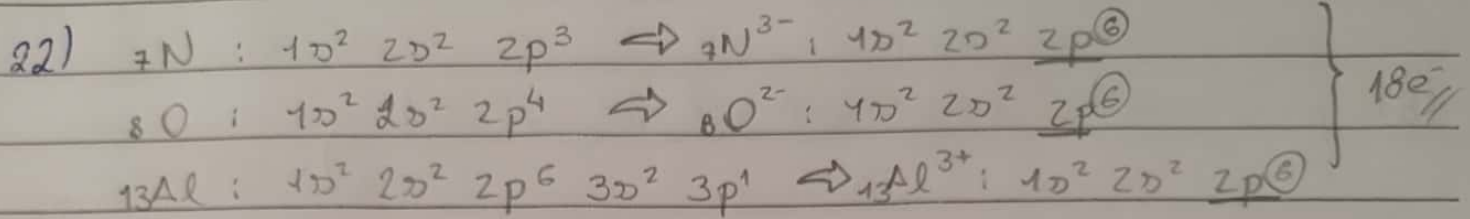 22) ₇N : 1s² 2s² 2p³ ⇒ ₇N³⁻ : 1s² 2s² 2p⁶
₈O : 1s² 2s² 2p⁴ ⇒ ₈O²⁻ : 1s² 2s² 2p⁶ } 18e⁻
₁₃Al : 1s² 2s² 2p⁶ 3s² 3p¹ ⇒ ₁₃Al³⁺ : 1s² 2s² 2p⁶